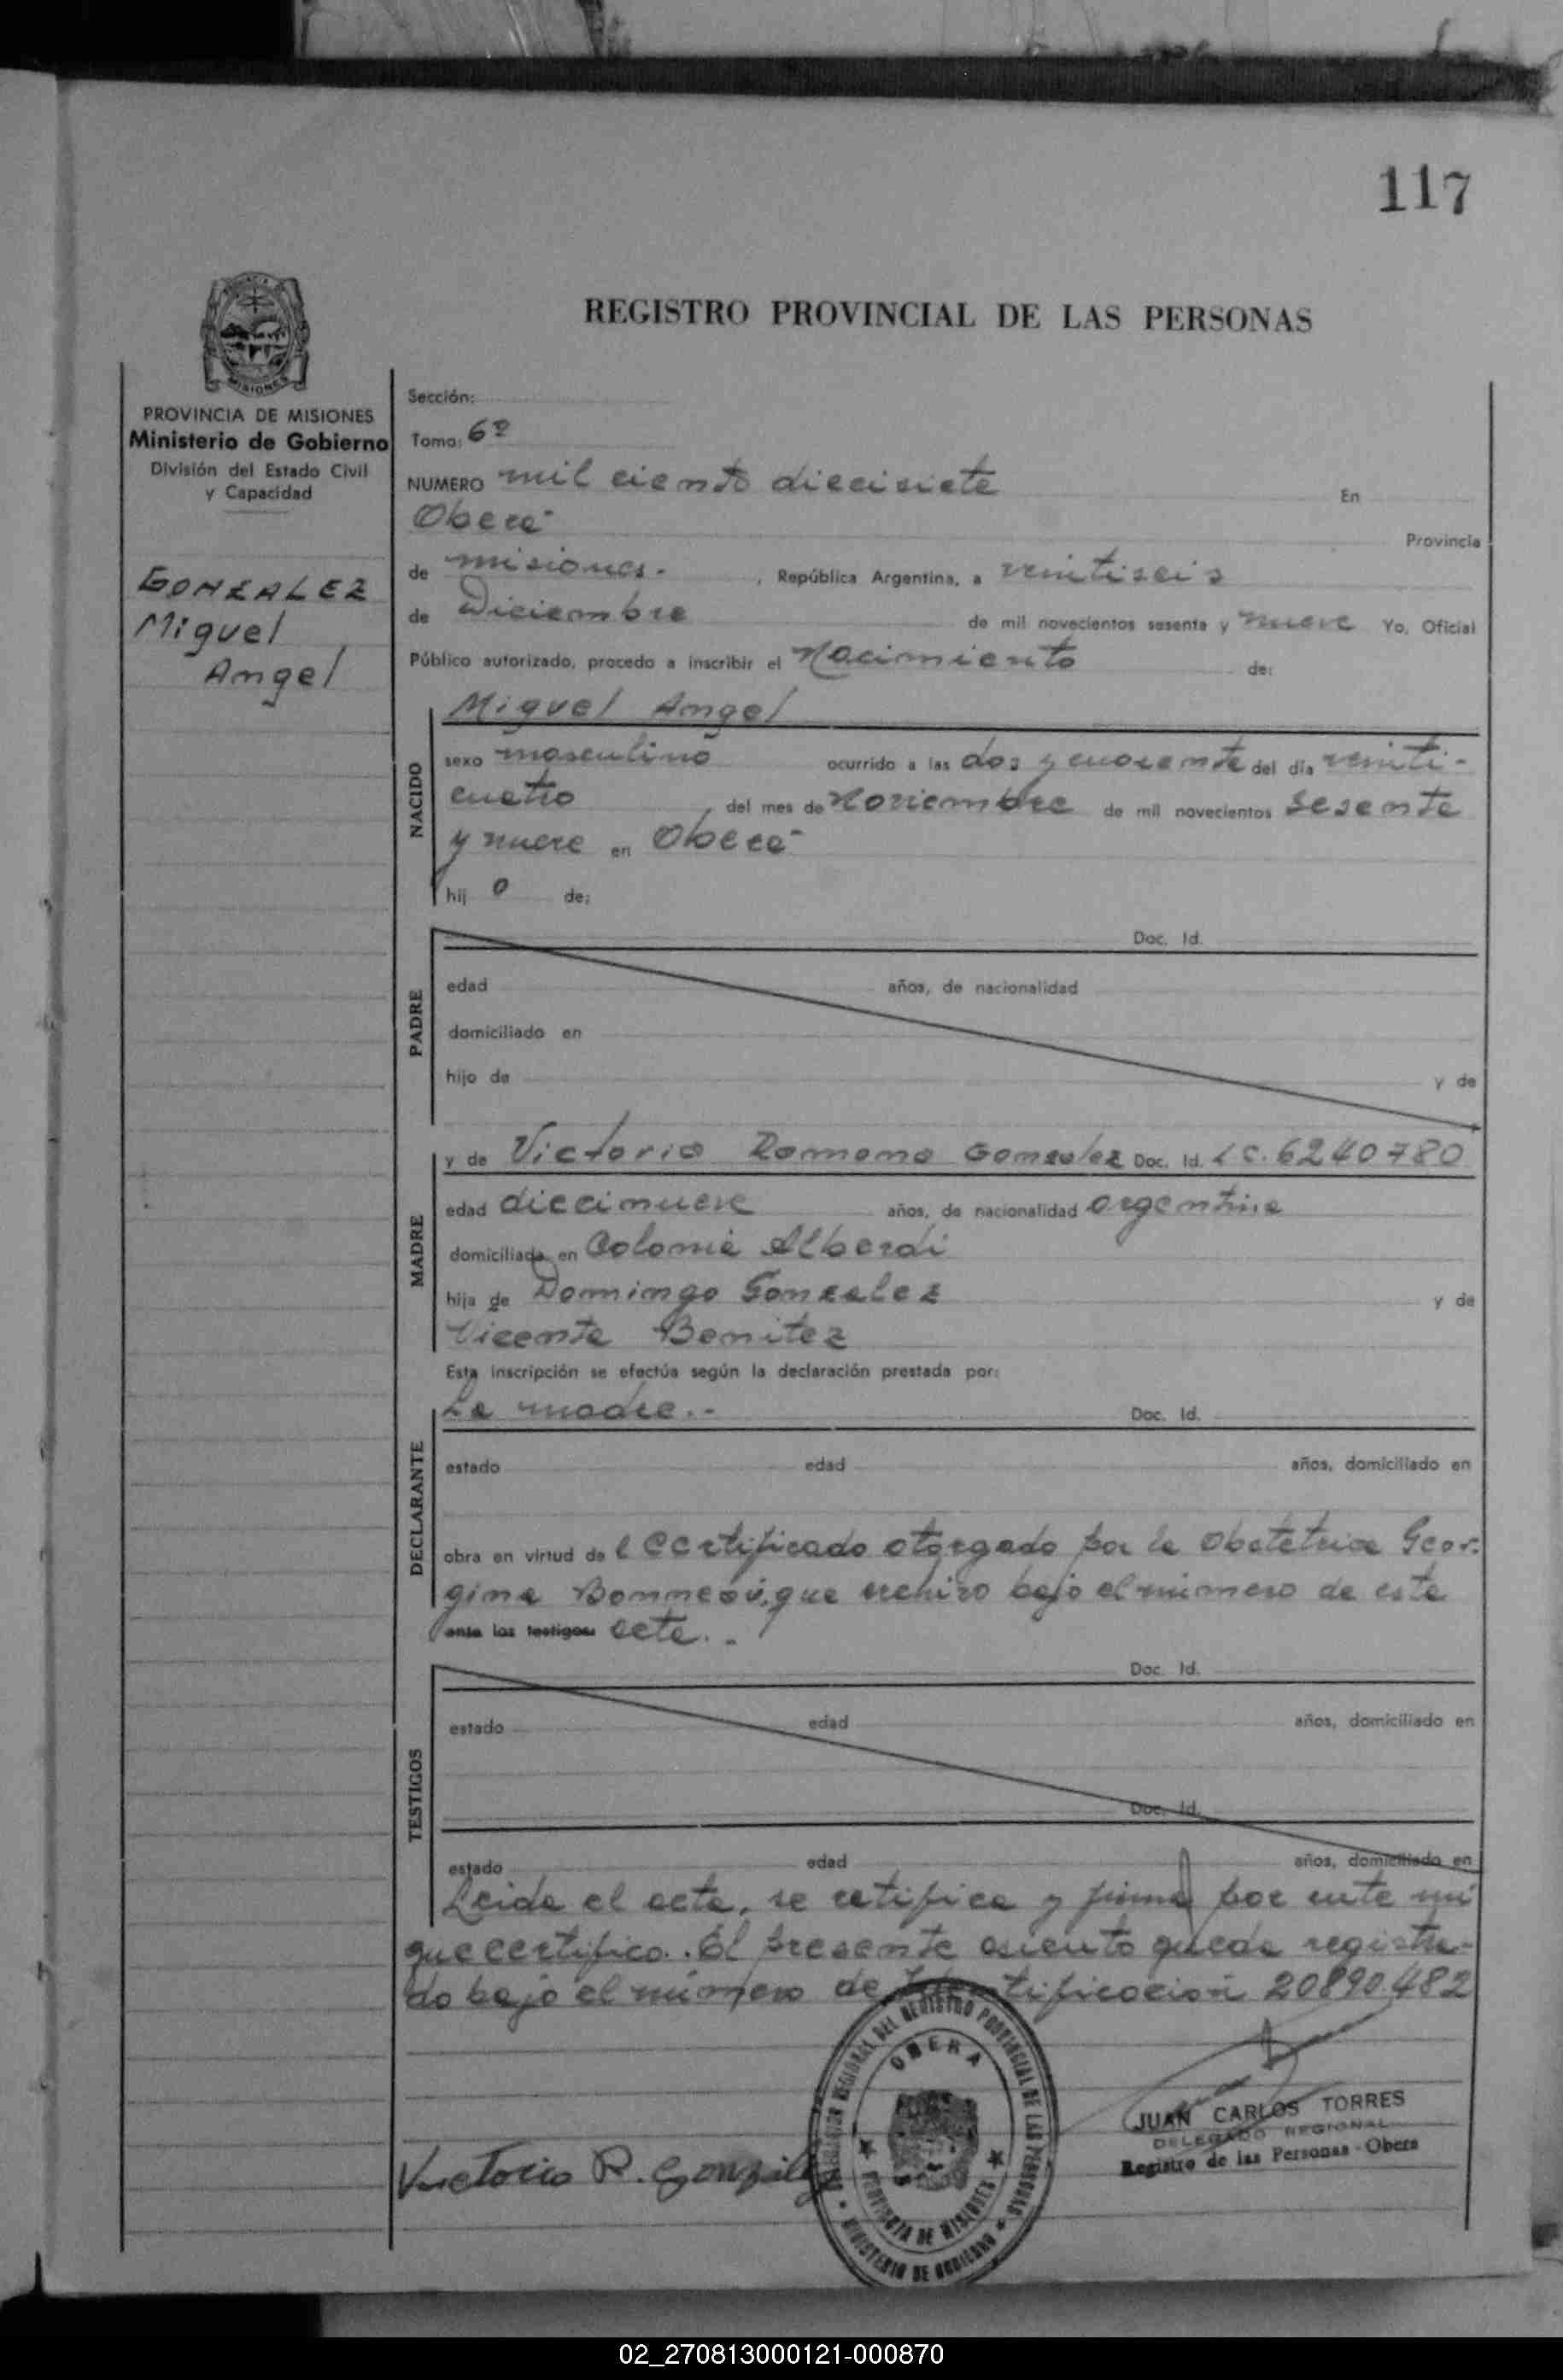 117
REGISTRO PROVINCIAL DE LAS PERSONAS
MISIONES
PROVINCIA DE MISIONES
Ministerio de Gobierno
División del Estado Civil
y Capacidad
GONZALEZ
Miguel
Angel
Sección:
Tomo: 6º
NUMERO mil ciento diecisiete En
Oberá Provincia
de misiones. , República Argentina, a veintiseis
de Diciembre de mil novecientos sesenta y nueve Yo, Oficial
Público autorizado, procedo a inscribir el Nacimiento de:
NACIDO
Miguel Angel
sexo masculino ocurrido a las dos y cuarenta del día veinti-
cuatro , del mes de Noviembre de mil novecientos sesenta
y nueve en Oberá
hij o de:
PADRE
Doc. Id.
edad años, de nacionalidad
domiciliado en
hijo de y de
MADRE
y de Victoria Ramona Gonzalez Doc. Id. LC. 6240780
edad diecinueve años, de nacionalidad argentina
domiciliada en Colonia Alberdi
hija de Domingo Gonzalez y de
Vicenta Benitez
Esta inscripción se efectúa según la declaración prestada por:
DECLARANTE
La madre.-
Doc. Id.
estado edad años, domiciliado en
obra en virtud de l certificado otorgado por la Obstetrica Geor-
gina que archivo bajo el número de este
ante los testigos acta.-
TESTIGOS
Doc. Id.
estado edad años, domiciliado en
Doc. Id.
estado edad años, domiciliado en
Leida el acta, se ratifica y firma por ante mi
que certifico. El presente asiento queda registra-
do bajo el número de Identificación 20890.482
Victoria R. Gonzalez
REGIONAL DEL REGISTRO PROVINCIAL DE LAS PERSONAS
OBERA
PROVINCIA DE MISIONES
MINISTERIO DE GOBIERNO
JUAN CARLOS TORRES
DELEGADO REGIONAL
Registro de las Personas - Obera
02_270813000121-000870